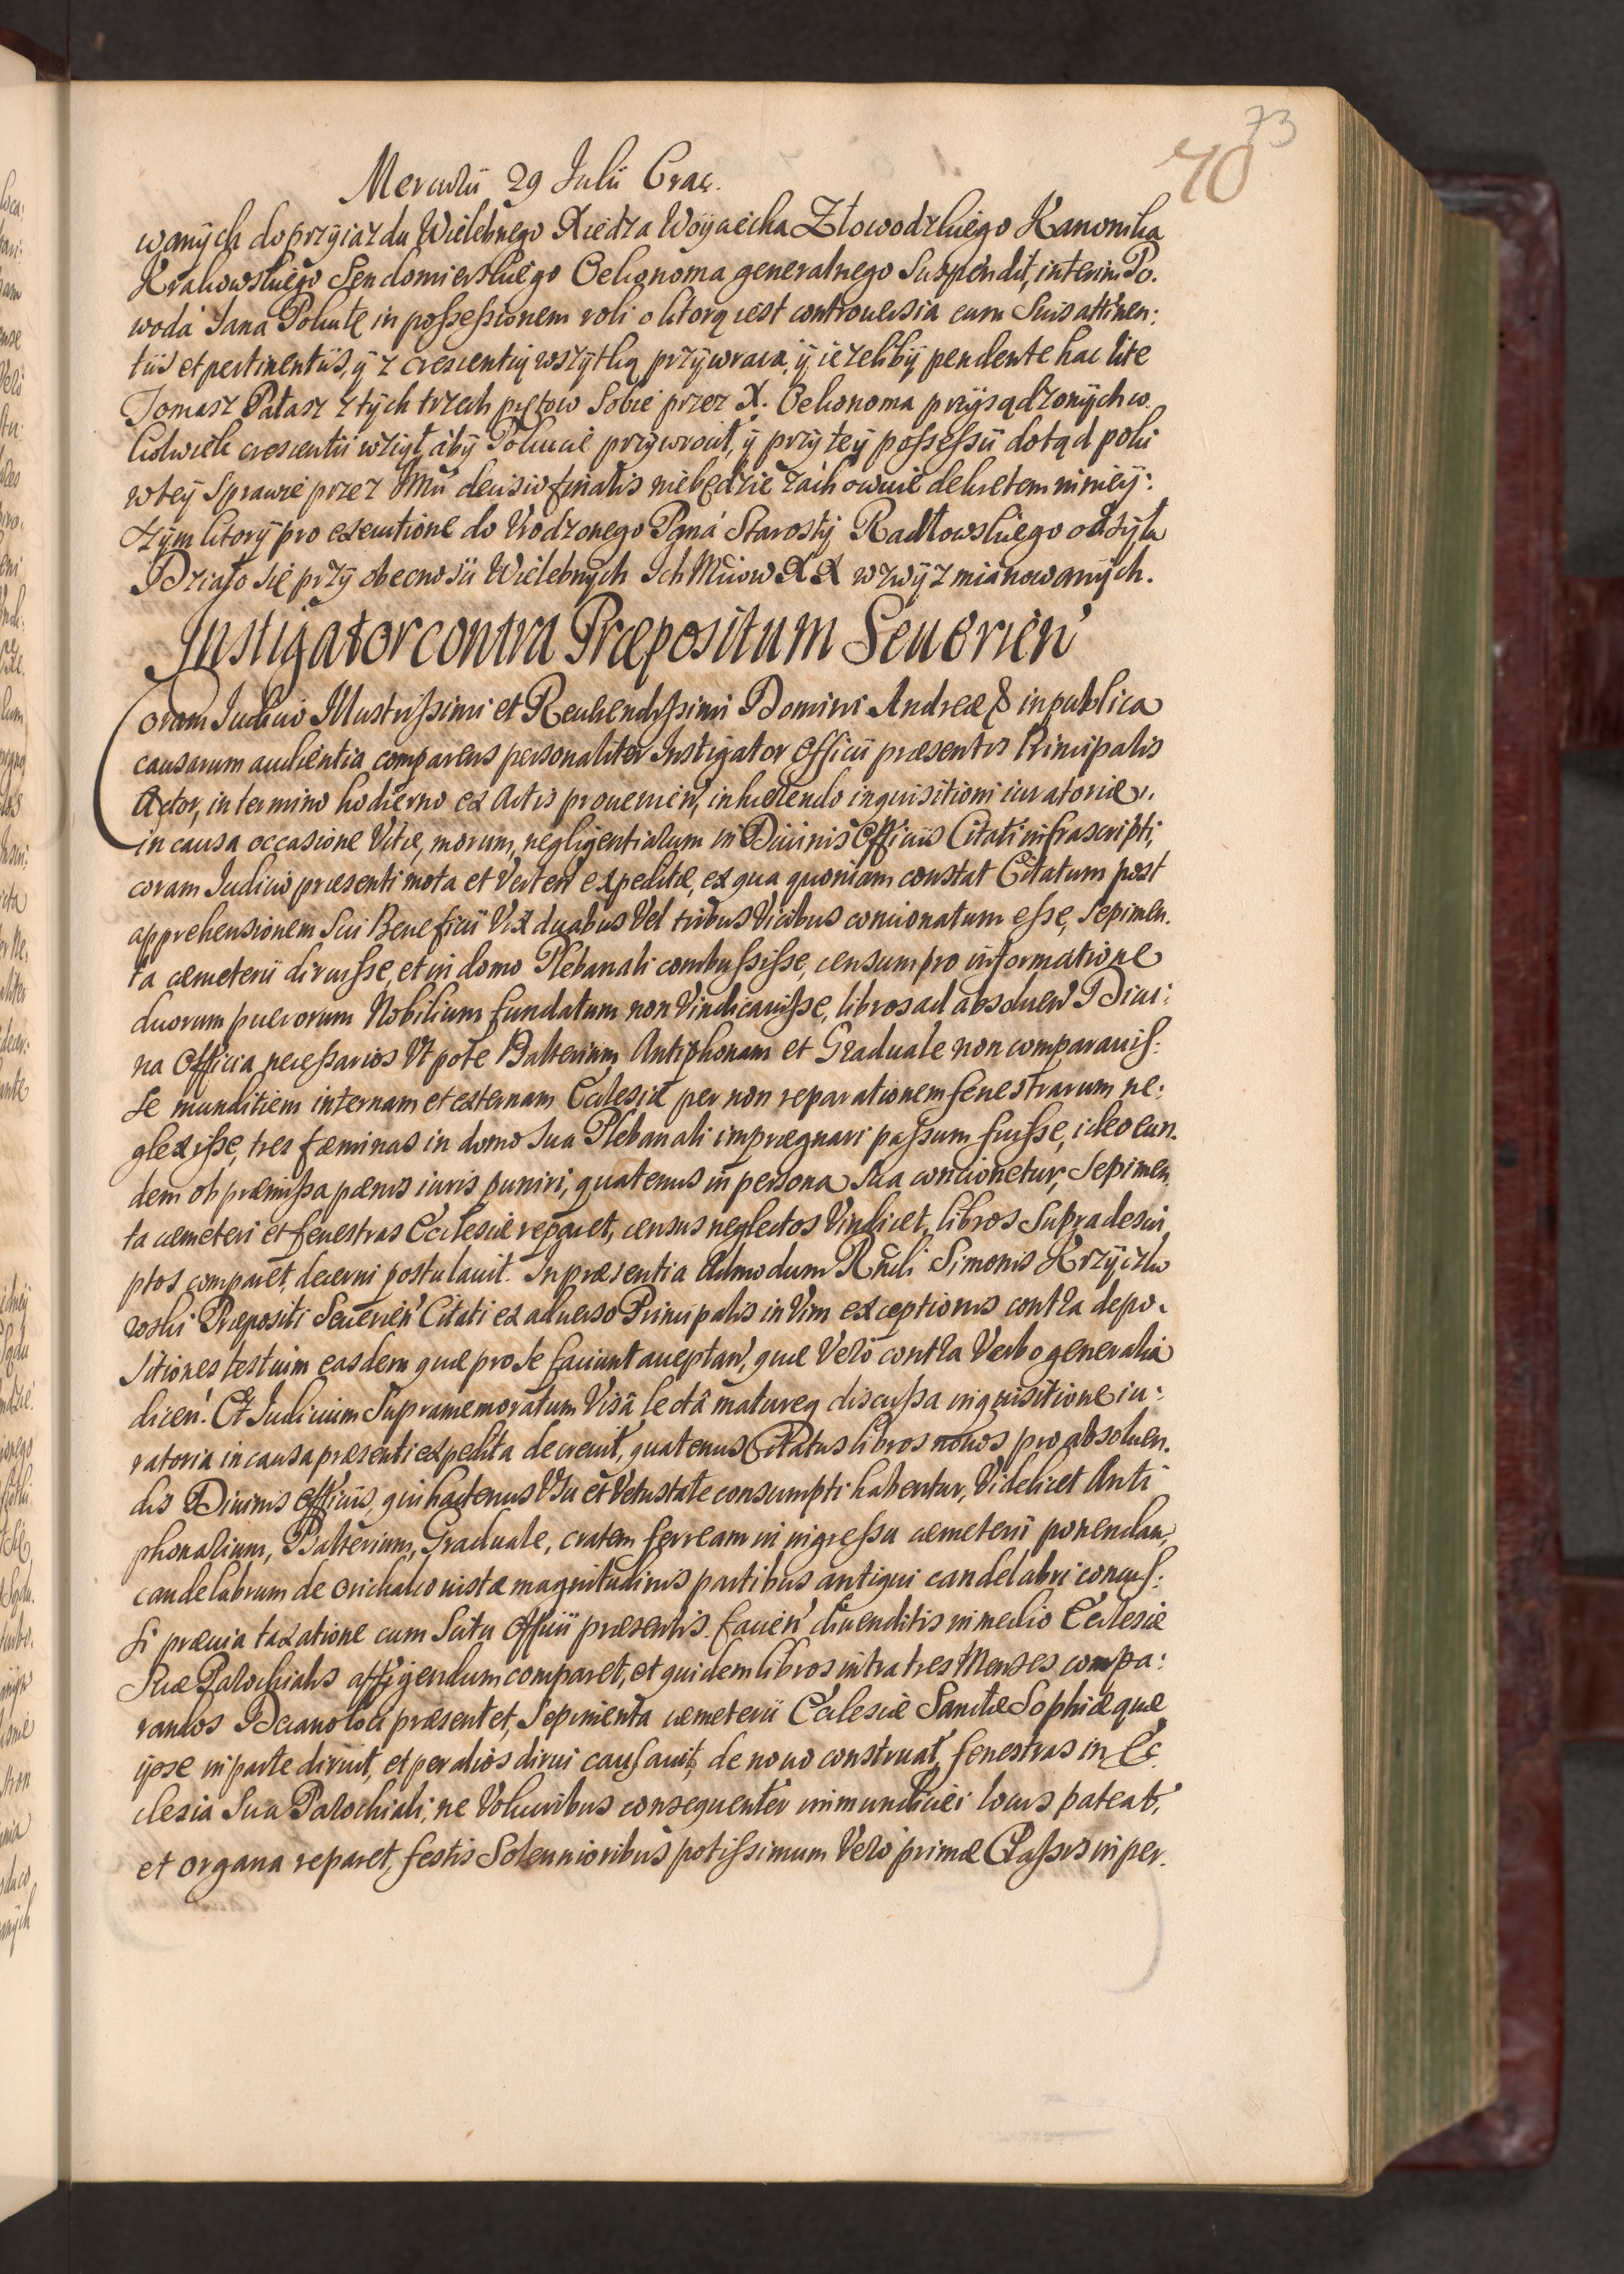 73
70
Mercurii 29 Julii Crac.
wanÿch do przÿiazdu Wielebnego Xiedza Woÿciecha Złowodzkiego Kanonika
Krakowskiego Sendomierskiego Oekonoma generalnego Suspendit, interim Po.
woda Jana Pokutę in possessionem roli o ktorą iest controuersia cum Suis attinen:
tiis et pertinentiis, ÿ z crescentią wszÿtką przÿwraca, ÿ iezelibÿ pendente hac lite
Tomasz Pałasz z tÿch trzech prętow Sobie przez X. Oekonoma przÿsądzonÿch co
kolwiek crescentii wziął, abÿ Pokucie przÿwrocił, ÿ przÿ teÿ possessii dotąd poki
w teÿ Sprawie przez Nas decisio finalis niebędzie zachowuie dekretem ninieÿ:
szÿm ktorÿ pro executione do Vrodzonego Pana Starostÿ Radłowskiego odsÿła
Działo się przÿ obecnosii Wielebnÿch Ich Mciow XX wzwÿz mianowanÿch.
Instigator contra Præpositum Seuerien'
Coram Judicio Illustrissimi et Reuerendissimi Domini Andreæ & in publica
causarum audientia comparens personaliter Instigator Officii præsentis Principalis
Actor, in termino hodierno ex Actis prouenien', inhærendo inquisitioni iuratoriæ
in causa occasione Vitæ, morum, negligentiarum in Diuinis Officiis Citati infrascripti,
coram Judicio præsenti mota et Verten' expeditæ, ex qua quoniam constat Citatum post
apprehensionem Sui Beneficii Vix duabus Vel tribus Vicibus concionatum esse, Sepimen.
ta cæmeterii diruisse, et in domo Plebanali combussisse, censum pro informatione
duorum puerorum Nobilium fundatum non Vindicauisse, libros ad absoluen' Diui:
na Officia necessarios Vt pote Psalterium, Antiphonam et Graduale non comparauis:
se munditiem internam et externam Ecclesiæ per non reparationem fenestrarum ne:
glexisse, tres fæminas in domo Sua Plebanali imprægnari passum fuisse, ideo eun.
dem ob præmissa pænis iuris puniri, quatenus in persona Sua concionetur, Sepimen
ta cæmeteri et fenestras Ecclesiæ reparet, census neglectos Vindicet, libros Supradescri
ptos comparet, decerni postulauit. In præsentia Admodum Rndi Simonis Krzÿczko
woski Præpositi Seuerien' Citati ex aduerso Principalis in Vim exceptionis contra depo.
sitiones testium easdem quæ pro se faciunt acceptan', quæ Vero contra Verbo generalia
dicen'. Et Judicium Supramemoratum Visâ lectâ matureq discussa inquisitione iu:
ratoria in causa præsenti expedita decreuit, quatenus Citatus libros nouos pro absoluen.
dis Diuinis Officiis, qui hactenus Vsu et Vetustate consumpti habentur, Videlicet Anti
phonalium, Psalterium, Graduale, cratem ferream in ingressu cæmeterii ponendam,
candelabrum de orichalco iustæ magnitudinis partibus antiqui candelabri concus:
si præuia taxatione cum Scitu Officii præsentis facien' diuenditis in medio Ecclesiæ
Suæ Parochialis affigendum comparet, et quidem libros intra tres Menses compa:
randos Decano loci præsentet, Sepimenta cæmeterii Ecclesiæ Sanctæ Sophiæ quæ
ipse in parte diruit, et per alios dirui causauit, de nouo construat, fenestras in Ec
clesia Sua Parochiali, ne Volucribus consequenter immundiciei locus pateat,
et organa reparet, festis Solennioribus potissimum Vero primæ Classis in per.